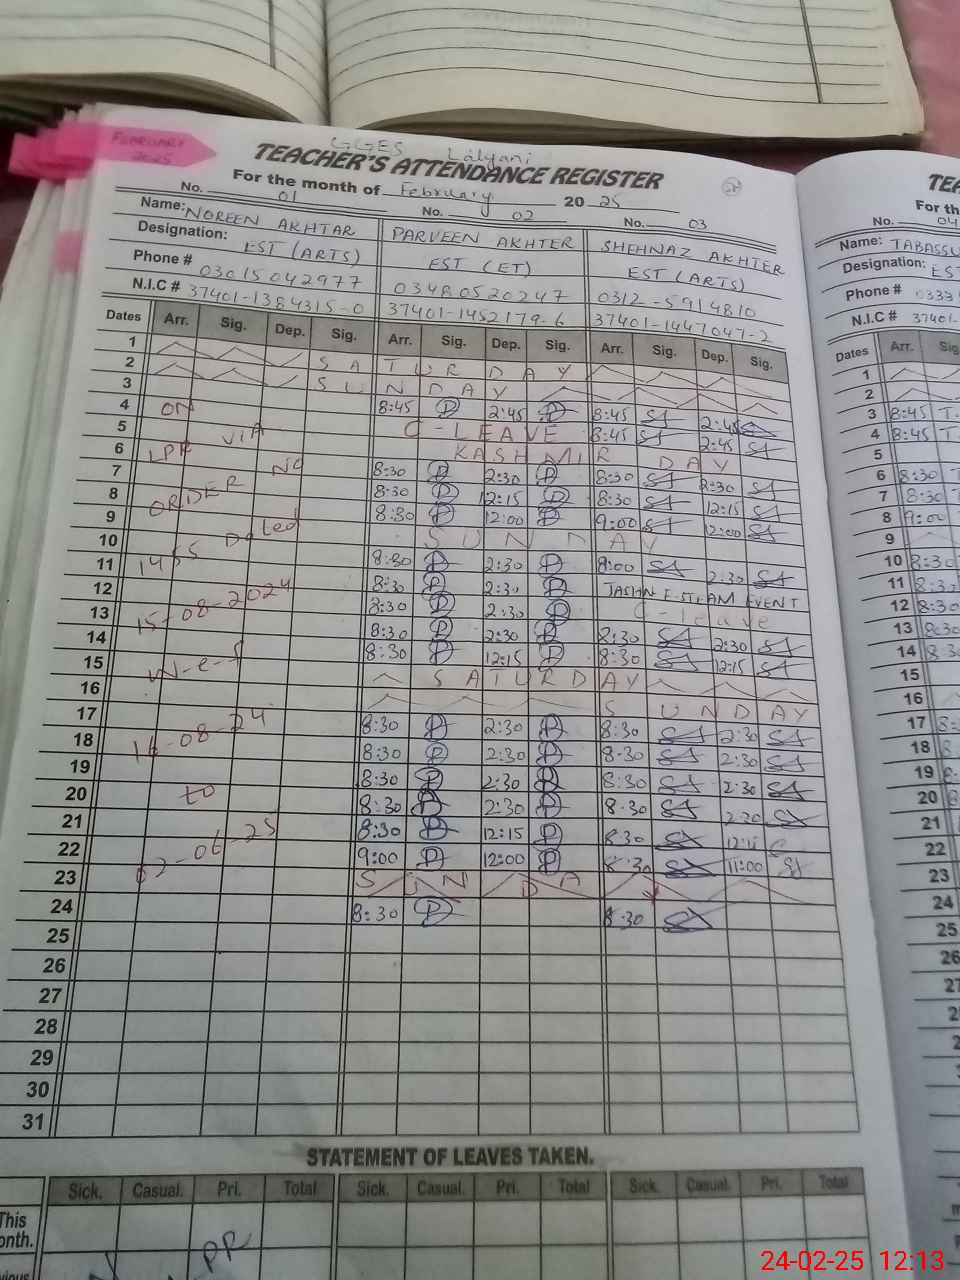 FEBRUARY
2025
GGES Lalyani
TEACHER'S ATTENDANCE REGISTER
For the month of February 2025
No. 01 No. 02 No. 03
Name: NOREEN AKHTAR PARVEEN AKHTER SHEHNAZ AKHTER
Designation: EST (ARTS) EST (ET) EST (ARTS)
Phone # 03015042977 03480520247 0312-5914810
N.I.C # 37401-1384315-0 37401-1452179-6 37401-1447047-2
Dates Arr. Sig. Dep. Sig. Arr. Sig. Dep. Sig. Arr. Sig. Dep. Sig.
1 SATURDAY
2 SUNDAY
3 8:45 P 2:45 P 8:45 SA 2:45
4 ON C-LEAVE 8:45 SA 2:45 SA
5 VIA KASHMIR DAY
6 LPR No 8:30 P 2:30 P 8:30 SA 2:30 SA
7 8:30 P 12:15 P 8:30 SA 12:15 SA
8 ORDER 8:30 P 12:00 P 9:00 SA 12:00 SA
9 Dated SUNDAY
10 1455 8:30 P 2:30 P 9:00 SA 2:30 SA
11 8:30 P 2:30 P JASHN E STEAM EVENT
12 15-08-2024 8:30 P 2:30 P C-leave
13 8:30 P 2:30 P 8:30 SA 2:30 SA
14 W-e-f 8:30 P 12:15 P 8:30 SA 12:15 SA
15 SATURDAY
16 SUNDAY
17 16-08-24 8:30 P 2:30 P 8:30 SA 2:30 SA
18 8:30 P 2:30 P 8:30 SA 2:30 SA
19 to 8:30 P 2:30 P 8:30 SA 2:30 SA
20 8:30 P 2:30 P 8:30 SA 2:30 SA
21 02-06-25 8:30 P 12:15 P 8:30 SA
22 9:00 P 12:00 P 8:30 SA 11:00 SA
23 SUNDAY
24 8:30 P 8:30 SA
25
26
27
28
29
30
31
STATEMENT OF LEAVES TAKEN.
Sick. Casual. Pri. Total Sick. Casual. Pri. Total Sick. Casual. Pri. Total
This
onth.
PR
No. 04
Name: TABASSU
Designation: EST
Phone # 0333
N.I.C # 37401-
Dates Arr. Sig
1
2
3 8:45 T
4 8:45 T
5
6 8:30 T
7 8:30
8 9:00
9
10 8:30
11 8:30
12 8:30
13 8:30
14 8:3
15
16
17
18
19
20
21
22
23
24
25
24-02-25 12:13